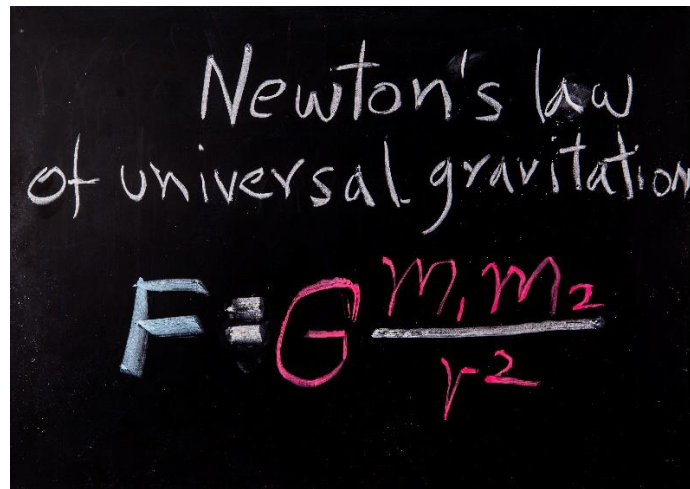 Newton's law
of universal gravitation
F = G m₁m₂
r²